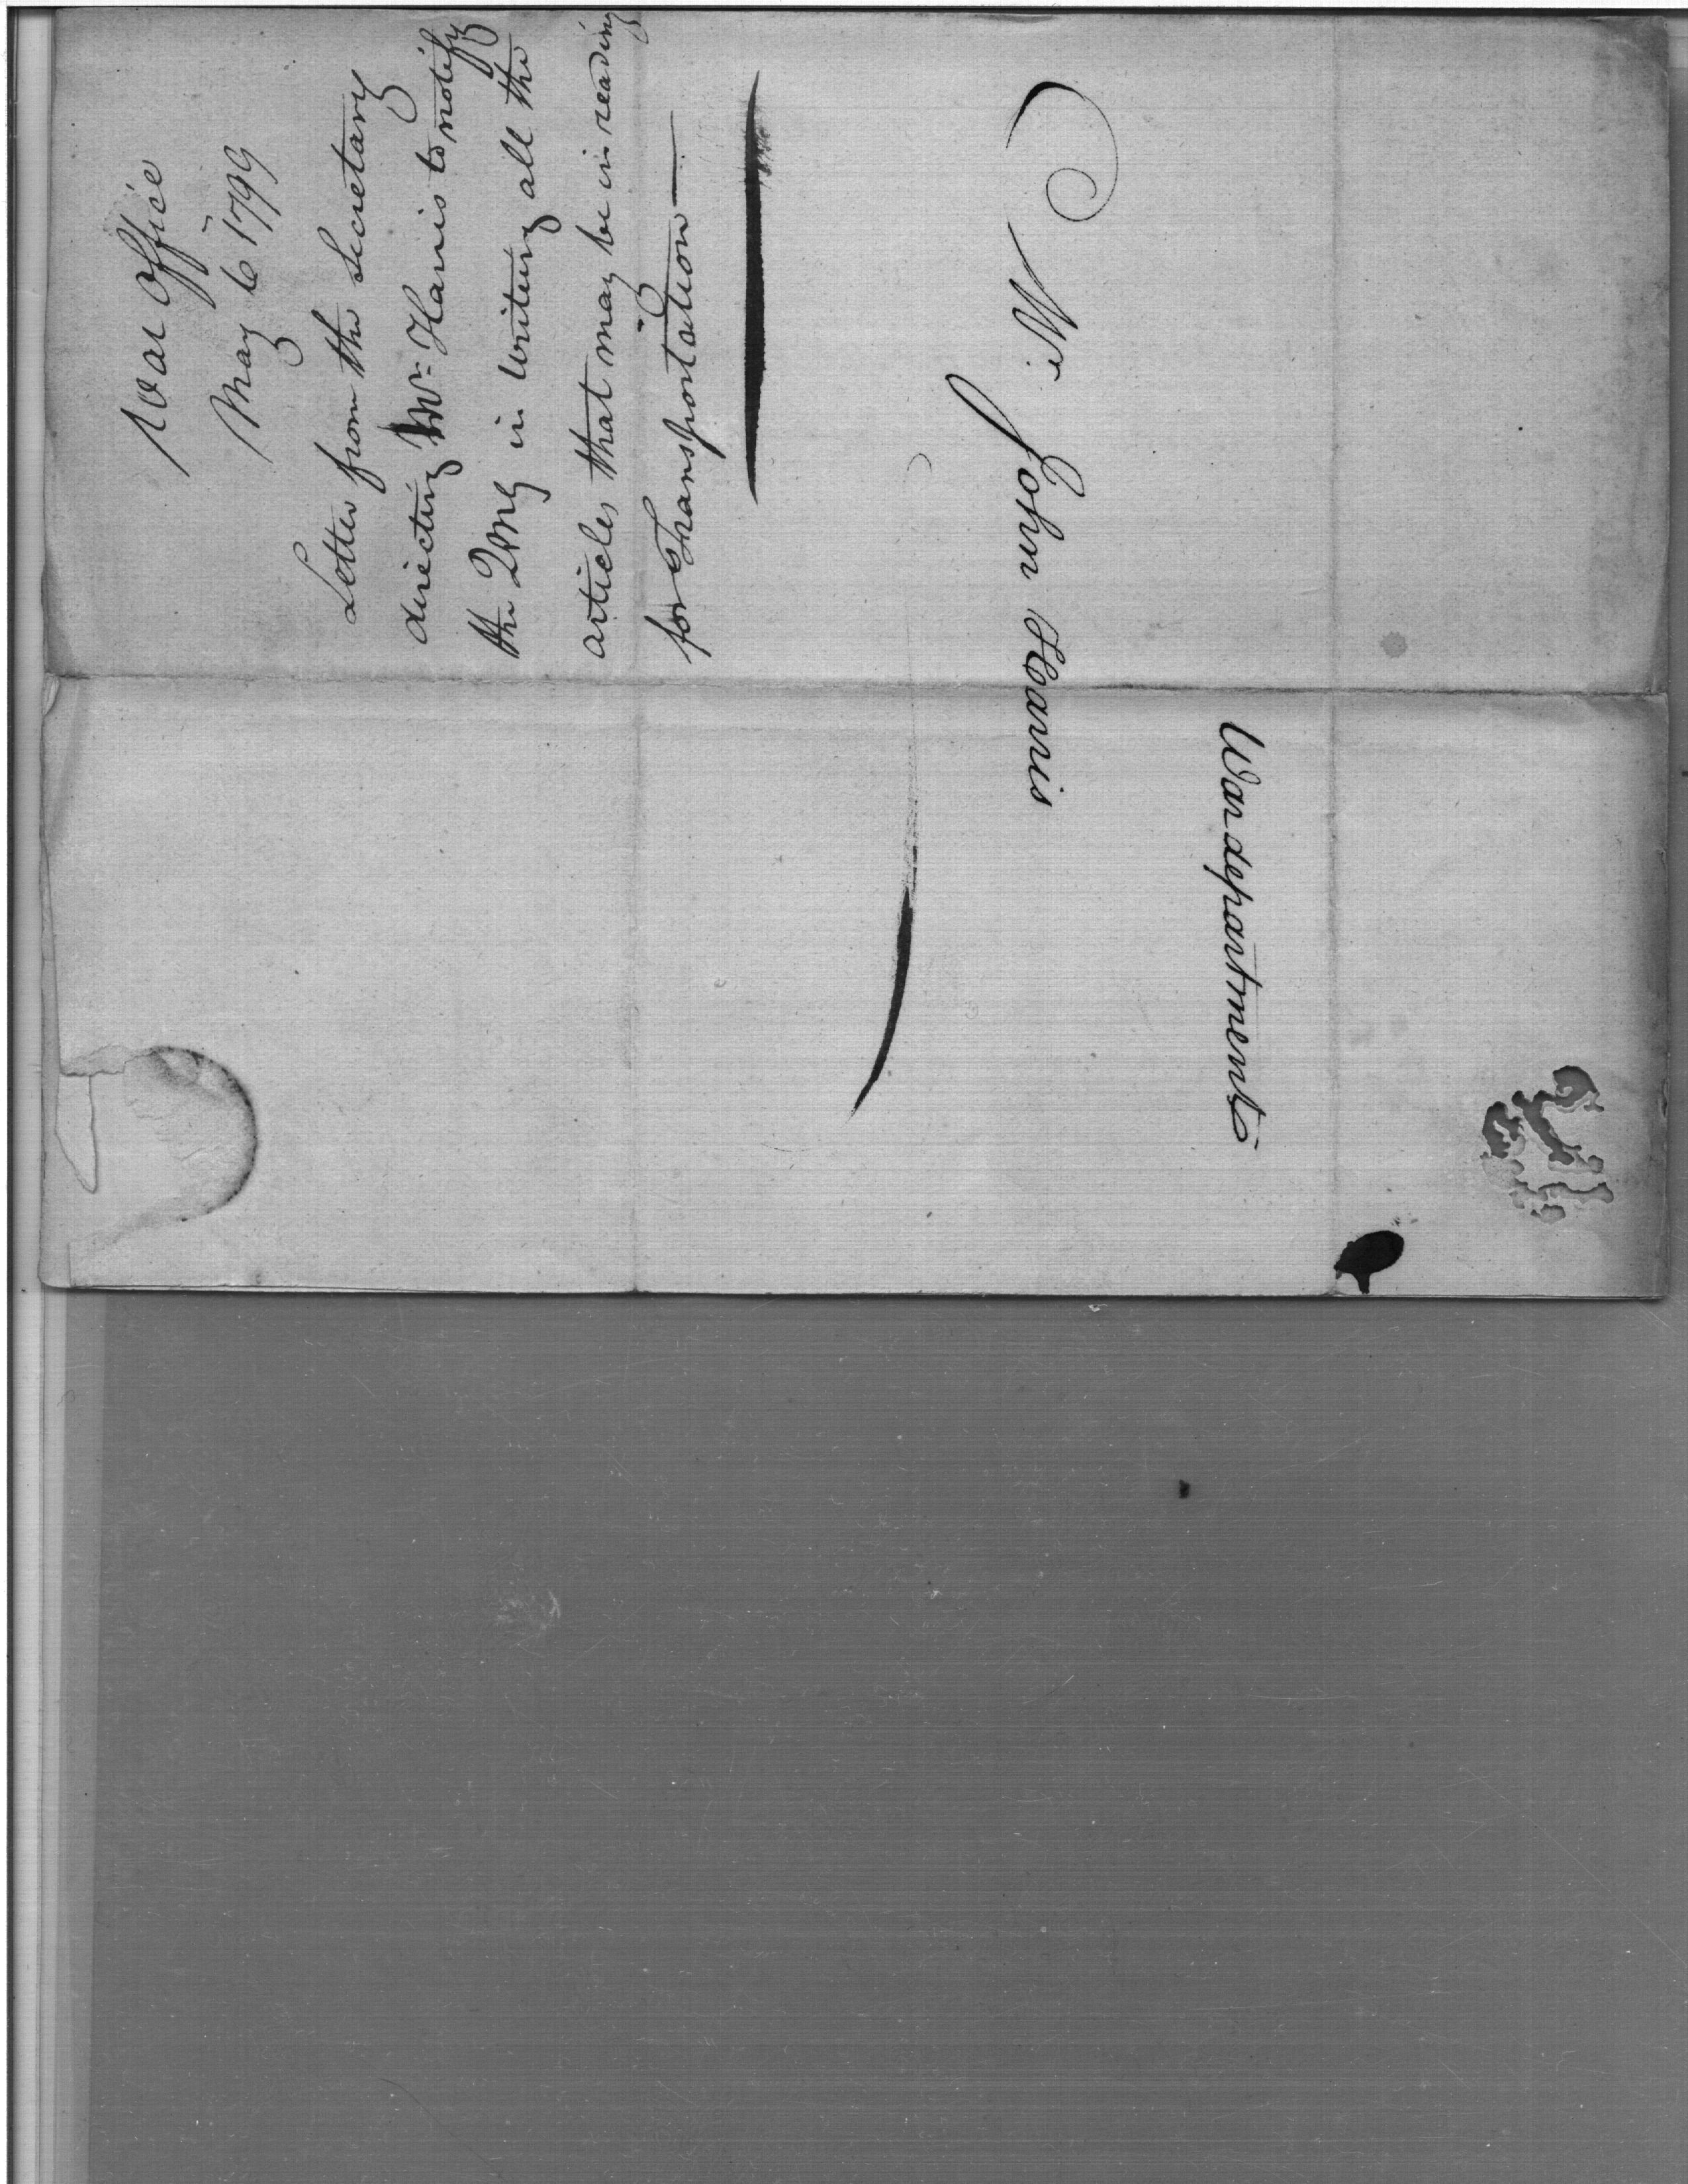 War Office
May 6 1799
Letter from the Secretary
directing Mr. Harris to notify
the QMG in writing all the
articles that may be in reading
for Transportation —
Mr. John Harris
War department